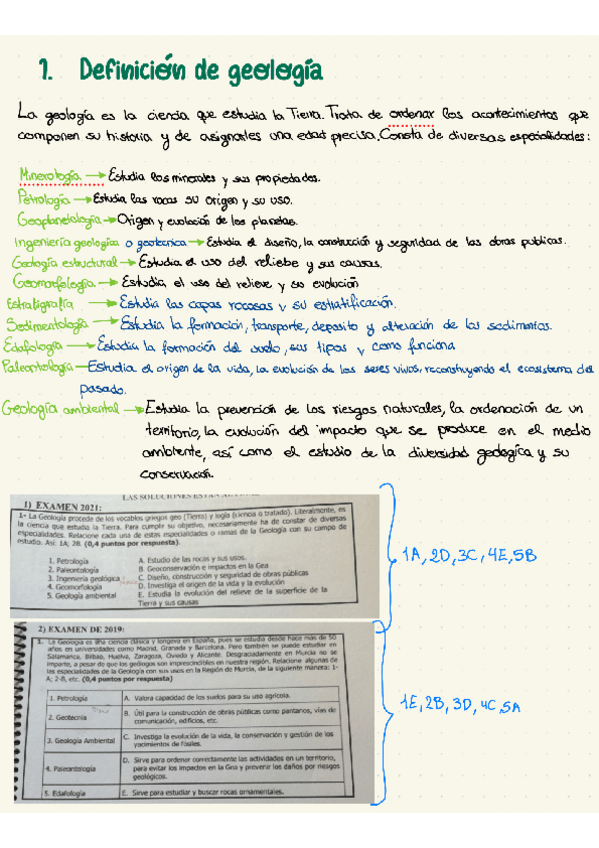 1. Definición de geología
La geología es la ciencia que estudia la Tierra. Trata de ordenar los acontecimientos que
componen su historia y de asignarles una edad precisa. Consta de diversas especialidades:
Minerología → Estudia los minerales y sus propiedades.
Petrología → Estudia las rocas su origen y su uso.
Geoplanetología → Origen y evolución de los planetas.
Ingeniería geológica o geotecnica → Estudia el diseño, la construcción y seguridad de las obras publicas.
Geología estructural → Estudia el uso del reliebe y sus causas.
Geomorfología → Estudia el uso del relieve y su evolución
Estratigrafía → Estudia las capas rocosas y su estratificación.
Sedimentología → Estudia la formación, transporte, deposito y alteración de los sedimentos.
Edafología → Estudia la formación del suelo, sus tipos y como funciona
Paleontología → Estudia el origen de la vida, la evolución de los seres vivos, reconstruyendo el ecosistema del
pasado.
Geología ambiental → Estudia la prevención de los riesgos naturales, la ordenación de un
territorio, la evolución del impacto que se produce en el medio
ambiente, así como el estudio de la diversidad geológica y su
conservación.
LAS SOLUCIONES
1) EXAMEN 2021:
1- La Geología procede de los vocablos griegos geo (Tierra) y logía (ciencia o tratado). Literalmente, es
la ciencia que estudia la Tierra. Para cumplir su objetivo, necesariamente ha de constar de diversas
especialidades. Relacione cada una de estas especialidades o ramas de la Geología con su campo de
estudio. Así: 1A; 2B. (0,4 puntos por respuesta).
1. Petrología A. Estudio de las rocas y sus usos.
2. Paleontología B. Geoconservación e impactos en la Gea
3. Ingeniería geológica C. Diseño, construcción y seguridad de obras públicas
4. Geomorfología D. Investiga el origen de la vida y la evolución
5. Geología ambiental E. Estudia la evolución del relieve de la superficie de la
Tierra y sus causas
1A, 2D, 3C, 4E, 5B
2) EXAMEN DE 2019:
1. La Geología es una ciencia clásica y longeva en España, pues se estudia desde hace más de 50
años en universidades como Madrid, Granada y Barcelona. Pero también se puede estudiar en
Salamanca, Bilbao, Huelva, Zaragoza, Oviedo y Alicante. Desgraciadamente en Murcia no se
imparte, a pesar de que los geólogos son imprescindibles en nuestra región. Relacione algunas de
las especialidades de la Geología con sus usos en la Región de Murcia, de la siguiente manera: 1-
A; 2-B, etc. (0,4 puntos por respuesta)
1. Petrología A. Valora capacidad de los suelos para su uso agrícola.
2. Geotecnia B. Útil para la construcción de obras públicas como pantanos, vías de
comunicación, edificios, etc.
3. Geología Ambiental C. Investiga la evolución de la vida, la conservación y gestión de los
yacimientos de fósiles.
4. Paleontología D. Sirve para ordenar correctamente las actividades en un territorio,
para evitar los impactos en la Gea y prevenir los daños por riesgos
geológicos.
5. Edafología E. Sirve para estudiar y buscar rocas ornamentales.
1E, 2B, 3D, 4C, 5A